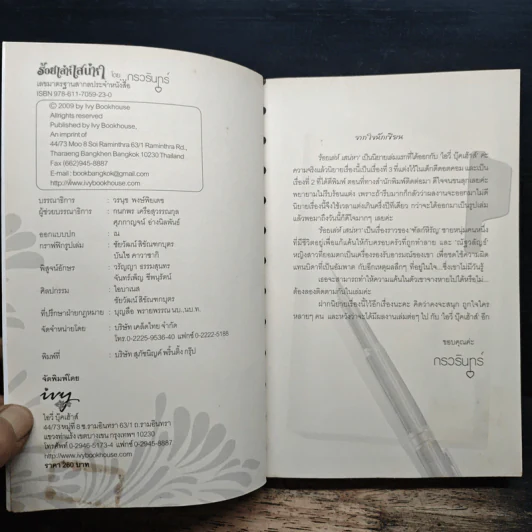 ร้อยเล่ห์เสน่หา โดย กรวรินทร์
เลขมาตรฐานสากลประจำหนังสือ
ISBN 978-611-7059-23-0
© 2009 by Ivy Bookhouse
Allrights reserved
Published by Ivy Bookhouse,
An imprint of
44/73 Moo 8 Soi Ramintra 63/1 Ramintra Rd.,
Tharaeng Bangkhen Bangkok 10230 Thailand.
Fax (662)945-8887
E-mail : bookbangkok@gmail.com
http://www.ivybookhouse.com
บรรณาธิการ : วรนุช พงษ์พิยเดช
ผู้ช่วยบรรณาธิการ : กนกพร เครือสุวรรณกุล
ศุภกาญจน์
ออกแบบปก : ณ
กราฟฟิกรูปเล่ม : ชัยวัฒน์ สิขัณฑกบุตร
บันใช คาวาซากิ
พิสูจน์อักษร : วรัญญา ธรรมสุนทร
จันทร์เพ็ญ ชีพนุรัตน์
ศิลปกรรม : ไอบาเนส
ชัยวัฒน์ สิขัณฑกบุตร
ที่ปรึกษาฝ่ายกฎหมาย : บุญลือ พรายพรรณ นบ.,นบ.ท.
จัดจำหน่ายโดย : บริษัท เคล็ดไทย จำกัด
โทร.0-2225-9536-40 แฟกซ์ 0-2222-5188
พิมพ์ที่ : บริษัท สุภัชนิญค์ พริ้นติ้ง กรุ๊ป
จัดพิมพ์โดย
ivy
ไอวี่ บุ๊คเฮ้าส์
44/73 หมู่ที่ 8 ซ.รามอินทรา 63/1 ถ.รามอินทรา
แขวงท่าแร้ง เขตบางเขน กรุงเทพฯ 10230
โทรศัพท์ 0-2946-5173-4 แฟกซ์ 0-2945-8887
http://www.ivybookhouse.com
ราคา 260 บาท
จากใจนักเขียน
'ร้อยเล่ห์ เสน่หา' เป็นนิยายเล่มแรกที่ได้ออกกับ 'ไอวี่ บุ๊คเฮ้าส์' ค่ะ
ความจริงแล้วนิยายเรื่องนี้เป็นเรื่องที่ 3 ที่แต่งไว้ในเด็กดีดอตคอม และเป็น
เรื่องที่ 2 ที่ได้ตีพิมพ์ ตอนที่ทางสำนักพิมพ์ติดต่อมา ดีใจจนขนลุกเลยค่ะ
พยายามไม่รีบร้อนแต่ง เพราะถ้ารีบมากก็กลัวว่าผลงานจะออกมาไม่ดี
นิยายเรื่องนี้จึงใช้เวลาแต่งเกินครึ่งปีทีเดียว กว่าจะได้ออกมาเป็นรูปเล่ม
แล้วพอมาถึงวันนี้ก็ดีใจมากๆ เลยค่ะ
'ร้อยเล่ห์ เสน่หา' เป็นเรื่องราวของ ชายหนุ่มคนหนึ่ง
ที่มีชีวิตอยู่เพื่อแก้แค้นให้กับครอบครัวที่ถูกทำลาย และ
หญิงสาวที่ยอมตกเป็นเครื่องรองรับอารมณ์ของเขา เพื่อชดใช้ความผิด
แทนบิดาที่เป็นอัมพาต กับอีกเหตุผลลึกๆ ที่อยู่ในใจ...ซึ่งเขาไม่มีวันรู้
เธอจะสามารถทำให้ความแค้นในตัวเขาจางหายไปได้หรือไม่...
ต้องลองติดตามกันในเล่มค่ะ
ฝากนิยายเรื่องนี้ไว้อีกเรื่องนะคะ คิดว่าคงจะสนุก ถูกใจใคร
หลายๆ คน และหวังว่าจะได้มีผลงานเล่มต่อๆ ไป กับ 'ไอวี่ บุ๊คเฮ้าส์' อีก
ขอบคุณค่ะ
กรวรินทร์